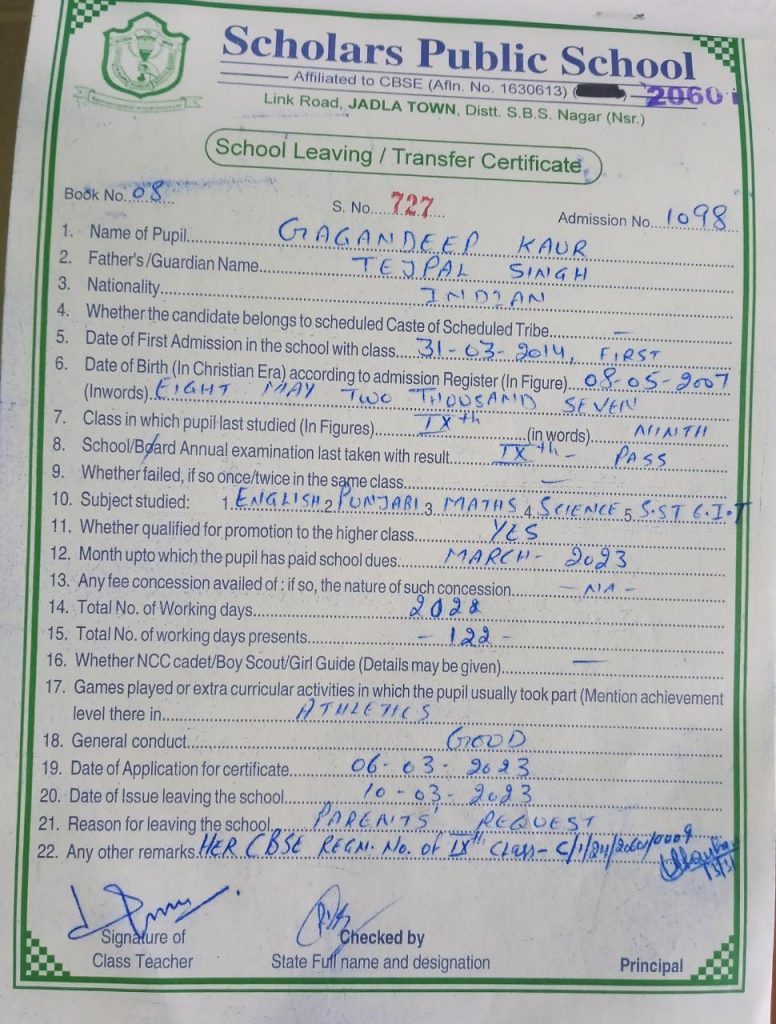 Scholars Public School
Affiliated to CBSE (Afln. No. 1630613) 20601
Link Road, JADLA TOWN, Distt. S.B.S. Nagar (Nsr.)
School Leaving / Transfer Certificate
Book No. 08 S. No. 727 Admission No. 1098
1. Name of Pupil GAGANDEEP KAUR
2. Father's/Guardian Name TEJPAL SINGH
3. Nationality INDIAN
4. Whether the candidate belongs to scheduled Caste of Scheduled Tribe —
5. Date of First Admission in the school with class 31-03-2014, FIRST
6. Date of Birth (In Christian Era) according to admission Register (In Figure) 08-05-2007
(Inwords) EIGHT MAY TWO THOUSAND SEVEN
7. Class in which pupil last studied (In Figures) IXth (in words) NINTH
8. School/Board Annual examination last taken with result IXth - PASS
9. Whether failed, if so once/twice in the same class —
10. Subject studied: 1. ENGLISH 2. PUNJABI 3. MATHS 4. SCIENCE 5. S.ST 6. I.T
11. Whether qualified for promotion to the higher class YES
12. Month upto which the pupil has paid school dues MARCH - 2023
13. Any fee concession availed of : if so, the nature of such concession - NA -
14. Total No. of Working days
15. Total No. of working days presents - 122 -
16. Whether NCC cadet/Boy Scout/Girl Guide (Details may be given) —
17. Games played or extra curricular activities in which the pupil usually took part (Mention achievement
level there in ATHLETICS
18. General conduct GOOD
19. Date of Application for certificate 06-03-2023
20. Date of Issue leaving the school 10-03-2023
21. Reason for leaving the school PARENTS' REQUEST
22. Any other remarks HER CBSE REGN. No. of IXth Class - C/1/24/20601/0009
Signature of
Class Teacher
Checked by
State Full name and designation
Principal